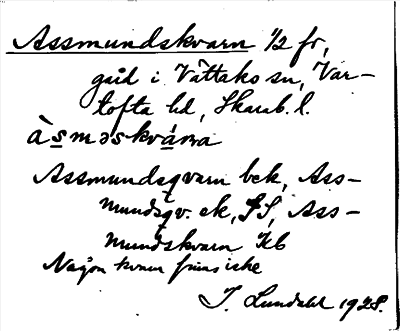 Assmundskvarn 1/2 fr,
gård i Vättaks sn, Var-
tofta hd, Skarab. l.
àsməskvána
Assmundsqvarn bek, Ass-
mundsqv. ek, SS, Ass-
mundskvarn Kb
Någon kvarn finns icke
J. Lundahl 1928.